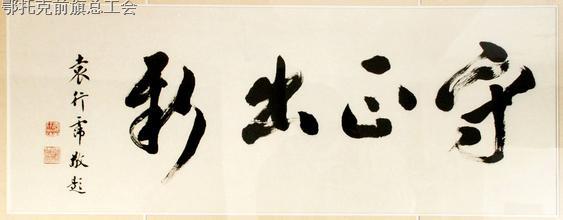 鄂托克前旗总工会
守正出新
袁行霈敬题